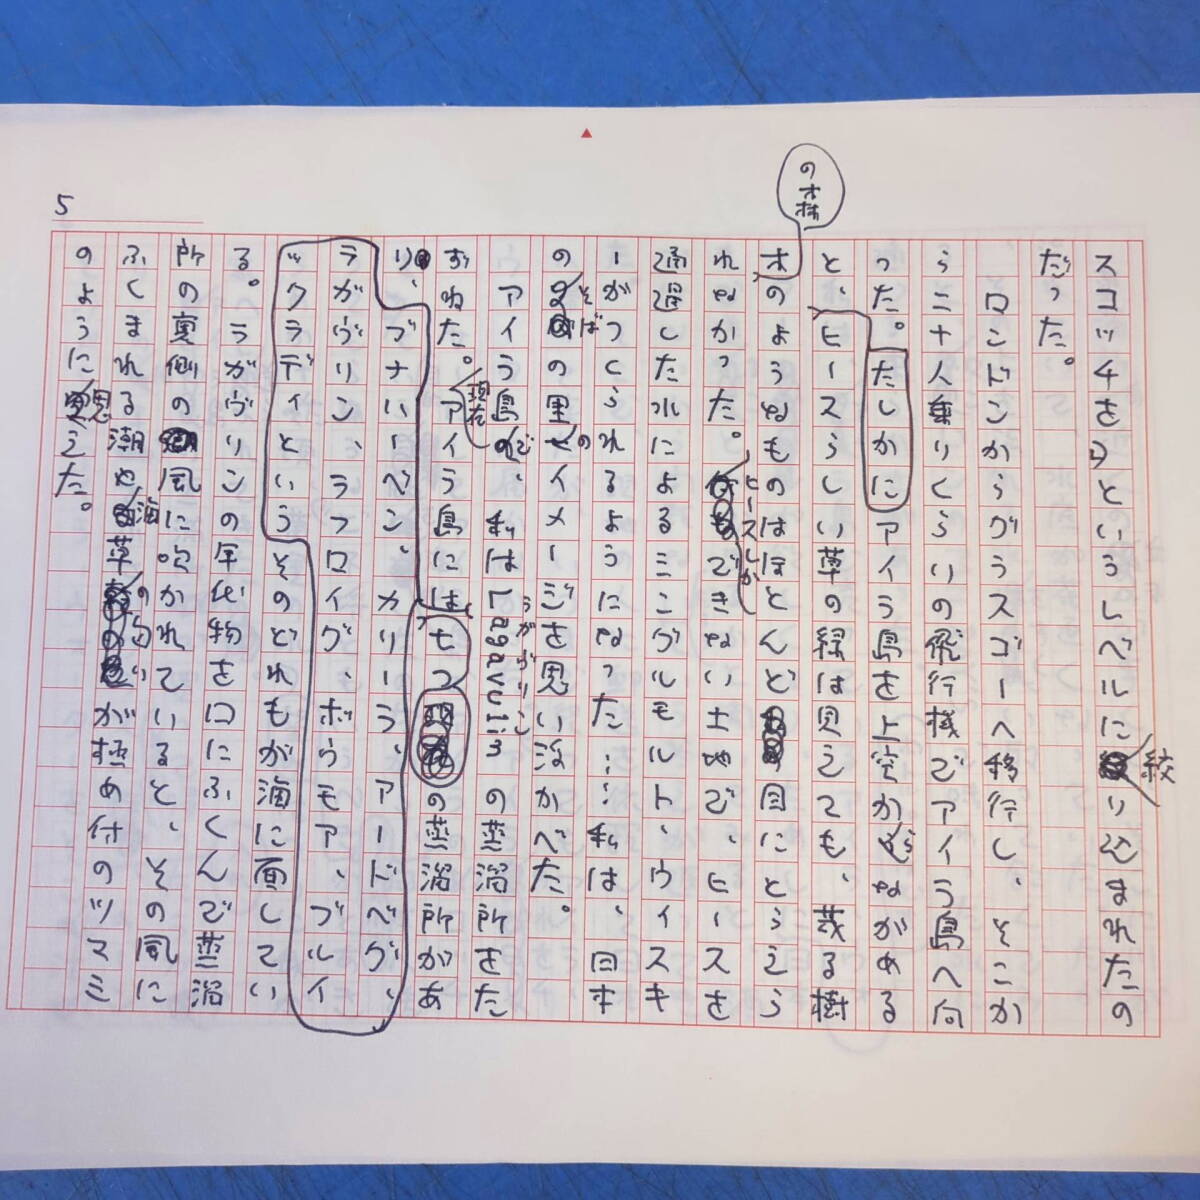 5
スコッチを、というレベルに絞り込まれたの
だった。
ロンドンからグラスゴーへ移行し、そこか
ら二十人乗りくらいの飛行機でアイラ島へ向
った。たしかにアイラ島を上空からながめる
と、ヒースらしい草の緑は見えても、茂る樹
木の森のようなものはほとんど目にとらえら
れなかった。ヒースしかできない土地で、ヒースを
通過した水によるミングルモルト、ウイスキ
ーがつくられるようになった……私は、日本
のそばの里のイメージを思い浮かべた。
アイラ島で、私はLagavulinラガヴリンの蒸溜所をた
ずねた。現在アイラ島には七つの蒸溜所があ
り、ブナハーベン、カリーラ、アードベグ、
ラガヴリン、ラフロイグ、ボウモア、ブルイ
ックラディというそのどれもが海に面してい
る。ラガヴリンの年代物を口にふくんで蒸溜
所の裏側の風に吹かれていると、その風に
ふくまれる潮や海草の匂いが極め付のツマミ
のように思えた。